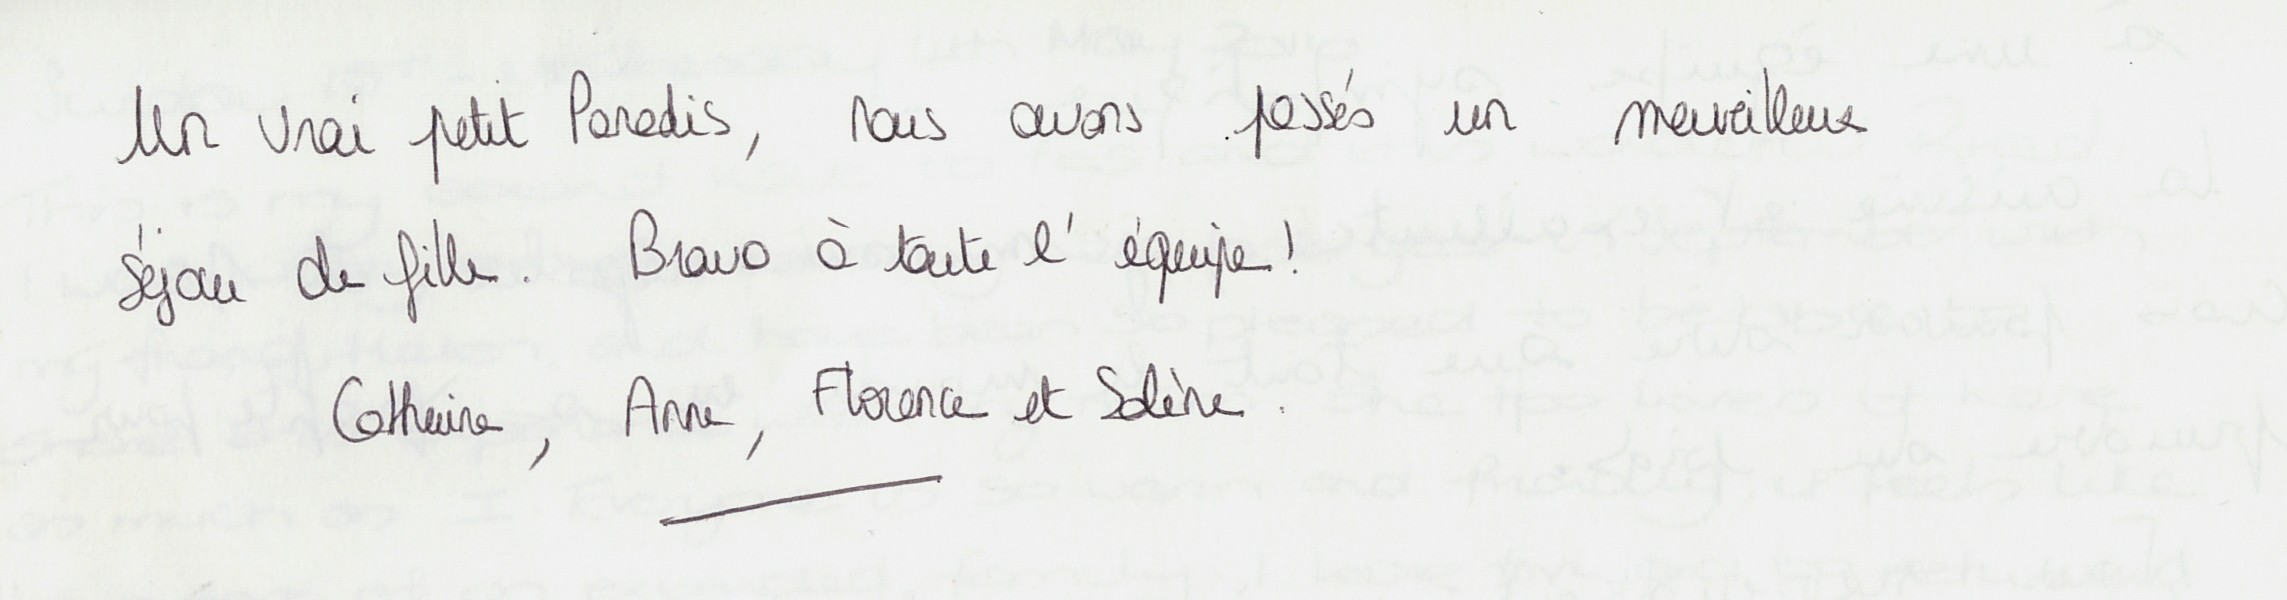 Un vrai petit Paradis, nous avons passés un merveilleux
séjour de fille. Bravo à toute l'équipe!
Catherine, Anne, Florence et Solène.